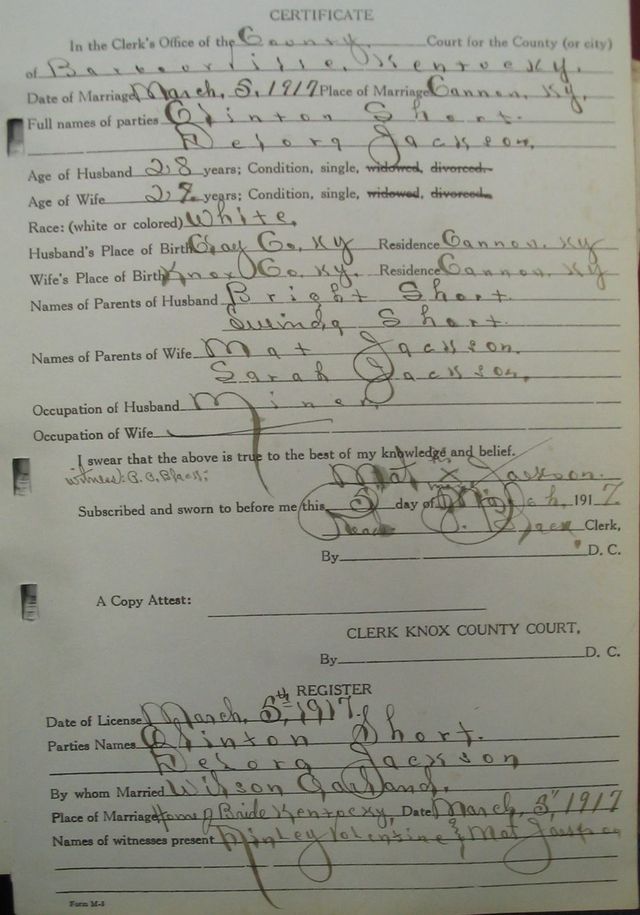 CERTIFICATE
In the Clerk's Office of the County. Court for the County (or city)
of Barbourville, Kentucky.
Date of Marriage March, 5, 1917 Place of Marriage Cannon, Ky.
Full names of parties Clinton Short.
Delora Jackson,
Age of Husband 28 years; Condition, single, widowed, divorced.
Age of Wife years; Condition, single, widowed, divorced.
Race: (white or colored) White,
Husband's Place of Birth Clay Co, Ky Residence Cannon, Ky
Wife's Place of Birth Knox Co, Ky. Residence Cannon, Ky
Names of Parents of Husband Bright Short.
Short.
Names of Parents of Wife Mat Jackson.
Sarah Jackson,
Occupation of Husband Miner
Occupation of Wife
I swear that the above is true to the best of my knowledge and belief.
witness: Mat X Jackson.
Subscribed and sworn to before me this 5 day of March, 1917
Clerk,
By D. C.
A Copy Attest:
CLERK KNOX COUNTY COURT,
By D. C.
REGISTER
Date of License March, 5th, 1917.
Parties Names Clinton Short.
Delora Jackson
By whom Married Wilson
Place of Marriage Home of Bride Kentucky, Date March, 5", 1917
Names of witnesses present & Mat Jackson
Form M-5